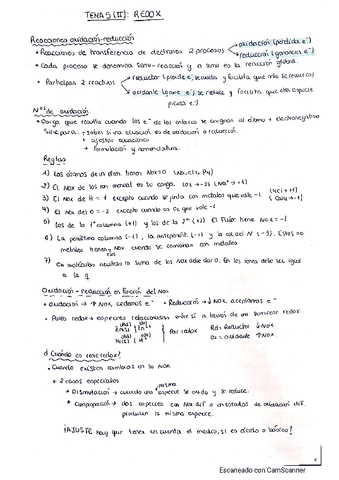 TEMA 5 (II): REDOX
Reacciones oxidación-reducción
• Reacciones de transferencia de electrones 2 procesos → oxidación: (pérdida e⁻)
→ reducción: (ganancia e⁻)
• Cada proceso se denomina semi-reacción y la suma es la reacción global.
• Participan 2 reactivos → reductor (pierde e⁻) se oxida y facilita que otro se reduzca
→ oxidante (gane e⁻) se reduce y facilita que otra especie
pierda e⁻)
Nos de oxidación
• Carga que resulta cuando los e⁻ de los enlaces se asignan al átomo + electronegativo
Sirve para: + saber si una ecuación es de oxidación o reducción.
+ ajustar ecuaciones
+ formulación y nomenclatura.
Reglas
1) Los átomos de un elem. tienen Nox=0 (Na, Cl₂, P₄)
2) El Nox de los ion monoat. es su carga.
3) El Nox de H = 1 excepto cuando se junta con metales que vale -1
4) El Nox del O = -2 excepto cuando es O₂ que vale -1
5) Los de la 1ª columna (+1) y los de la 2ª (+2). El Flúor tiene Nox = -1
6) La penúltima columna (-1), la antepenúlt. (-2) y la col. del N (-3). Estos no
metales tienen Nox cuando se combinan con metales
7) En moléculas neutras la suma de los Nox debe dar 0. En los iones debe ser igual
a la q
Oxidación - reducción en función del Nox
• Oxidación → ↑ Nox cedemos e⁻ • Reducción → ↓ Nox aceptamos e⁻
• Pares redox → especies relacionadas entre sí a través de una semireac redox
Par redox Rd = Reductor ↓ Nox
Ox = oxidante ↑ Nox.
¿Cuando es reac redox?
• Cuando existen cambios en su Nox
* 2 casos especiales
* Dismutación → cuando una misma especie se oxida y se reduce.
* Comproporción → dos especies con Nox dif o en estados de oxidación dif.
producen la misma especie.
¡AJUSTE hay que tener en cuenta el medio, si es ácido o básico!
Escaneado con CamScanner